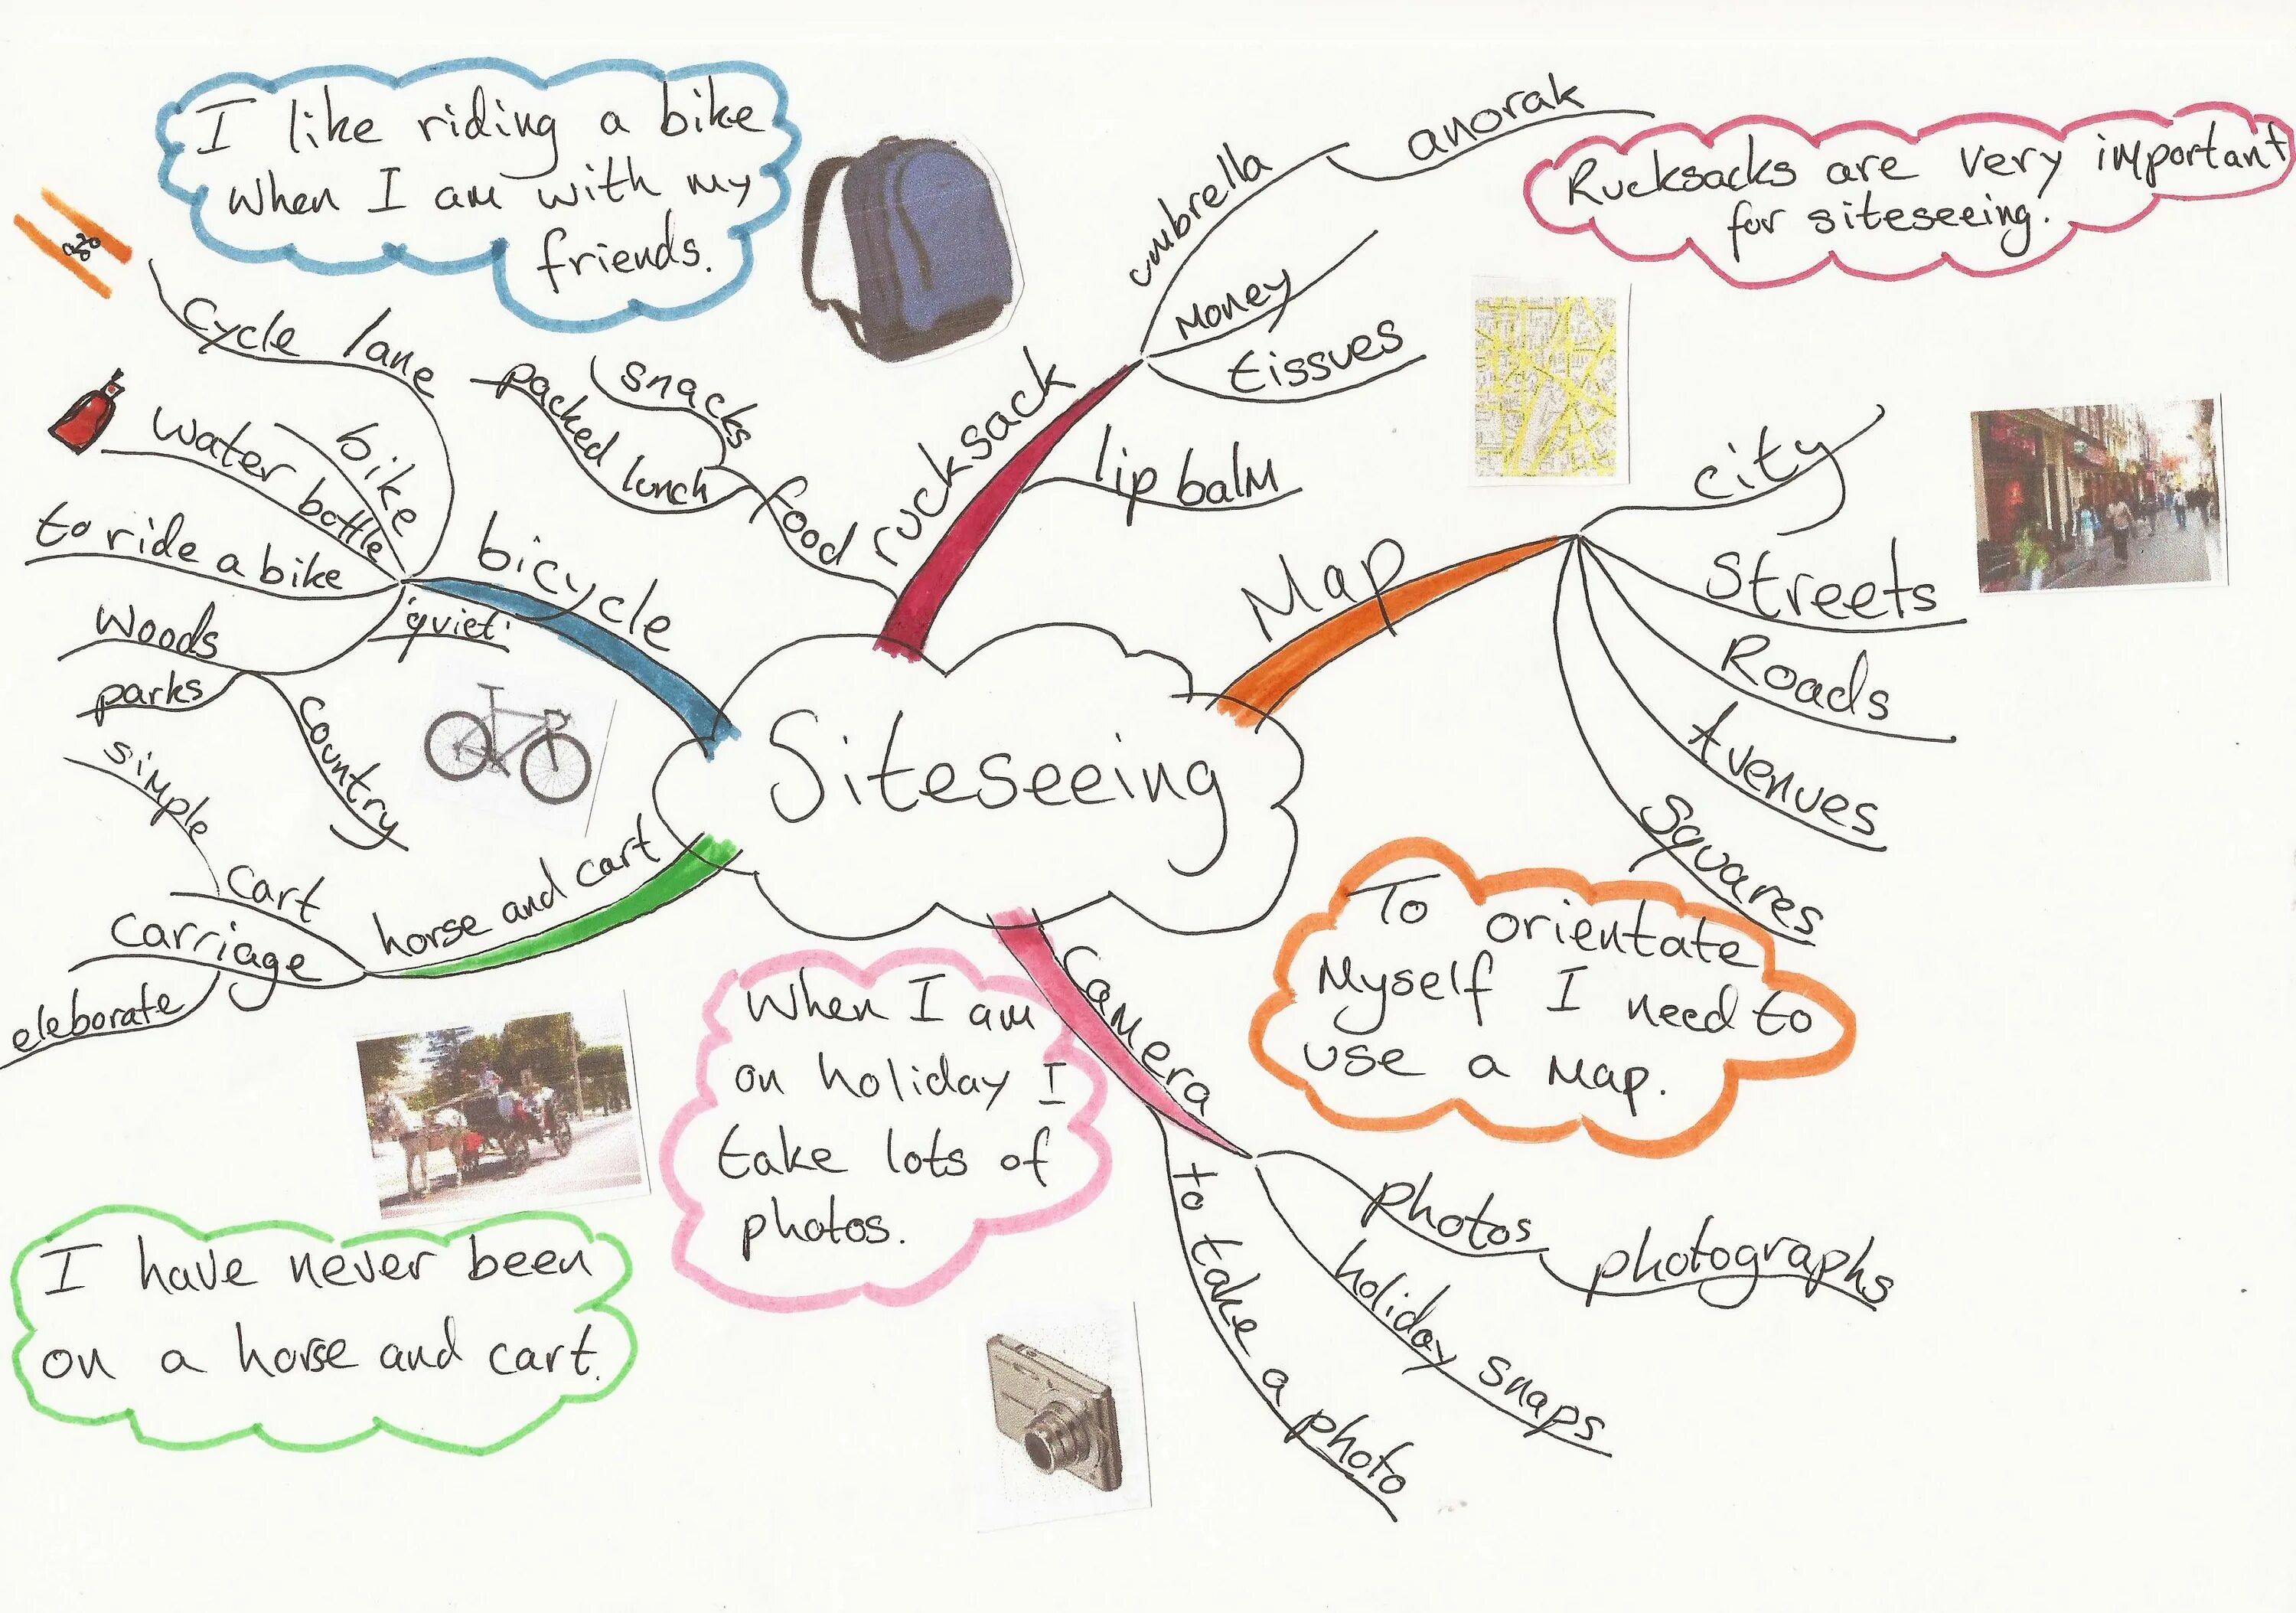 I like riding a bike
when I am with my
friends.
anorak
umbrella
Money
tissues
Rucksacks are very important
for siteseeing.
rucksack
lip balm
food
snacks
packed lunch
cycle lane
bike
water bottle
to ride a bike
bicycle
'quiet'
woods
parks
country
Map
city
Streets
Roads
Avenues
Squares
Siteseeing
simple
cart
carriage
eleborate
horse and cart
To orientate
Myself I need to
use a Map.
When I am
on holiday I
take lots of
photos.
camera
photos
photographs
holiday snaps
to take a photo
I have never been
on a horse and cart.